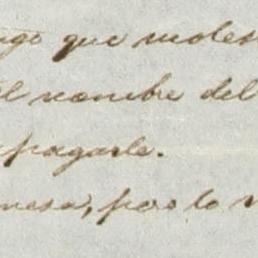 ngo que moles
el nombre del
pagarle.
mesa, por lo